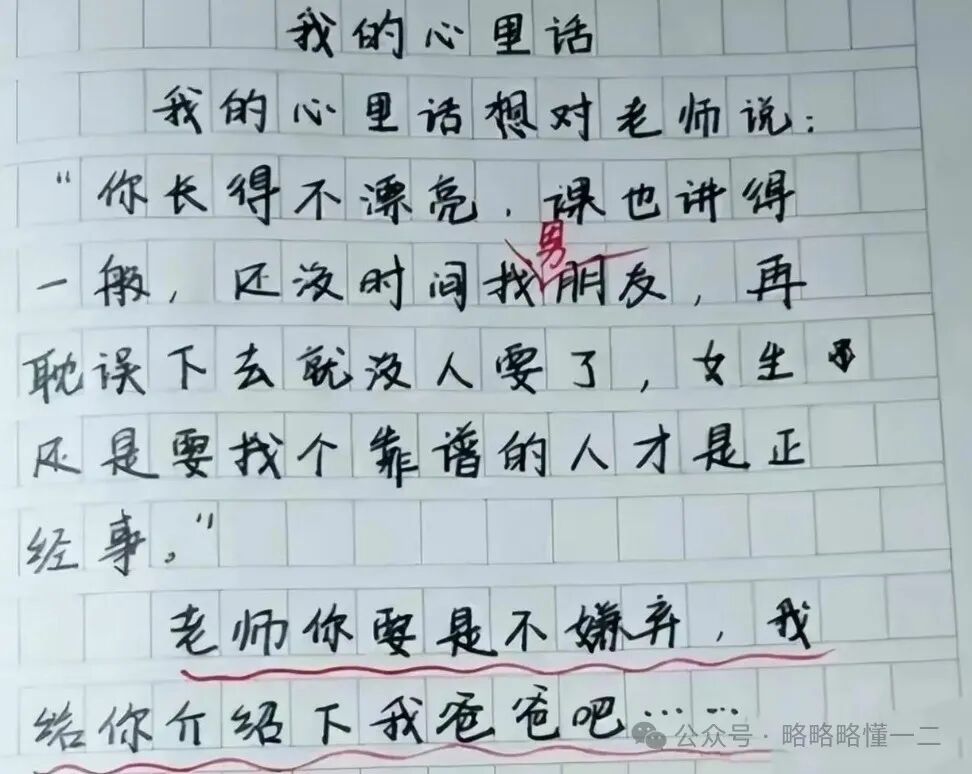 我的心里话
我的心里话想对老师说：
“你长得不漂亮，课也讲得
男
一般，还没时间找朋友，再
耽误下去就没人要了，女生
还是要找个靠谱的人才是正
经事。”
老师你要是不嫌弃，我
给你介绍下我爸爸吧……
公众号·略略略懂一二